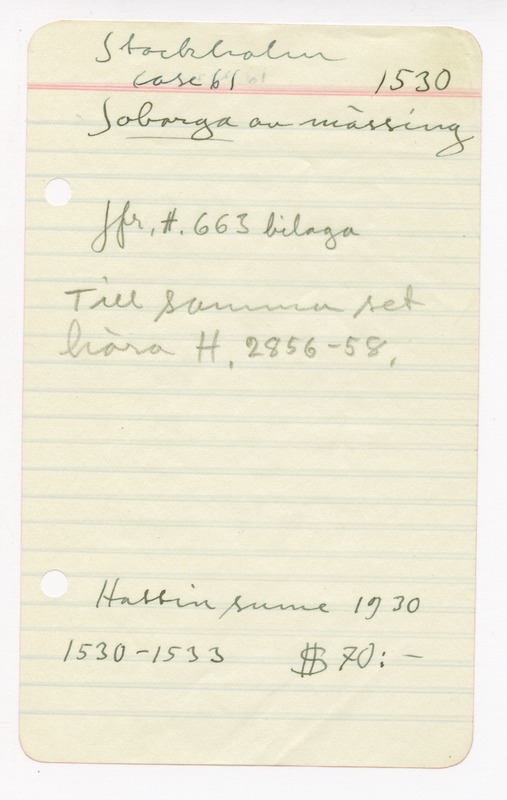 Stockholm
case 61 1530
Sobarga av mässing
Jfr. H. 663 bilaga
Till samma set
höra H. 2856-58.
Hattin sume 1930
1530-1533 $ 70:-